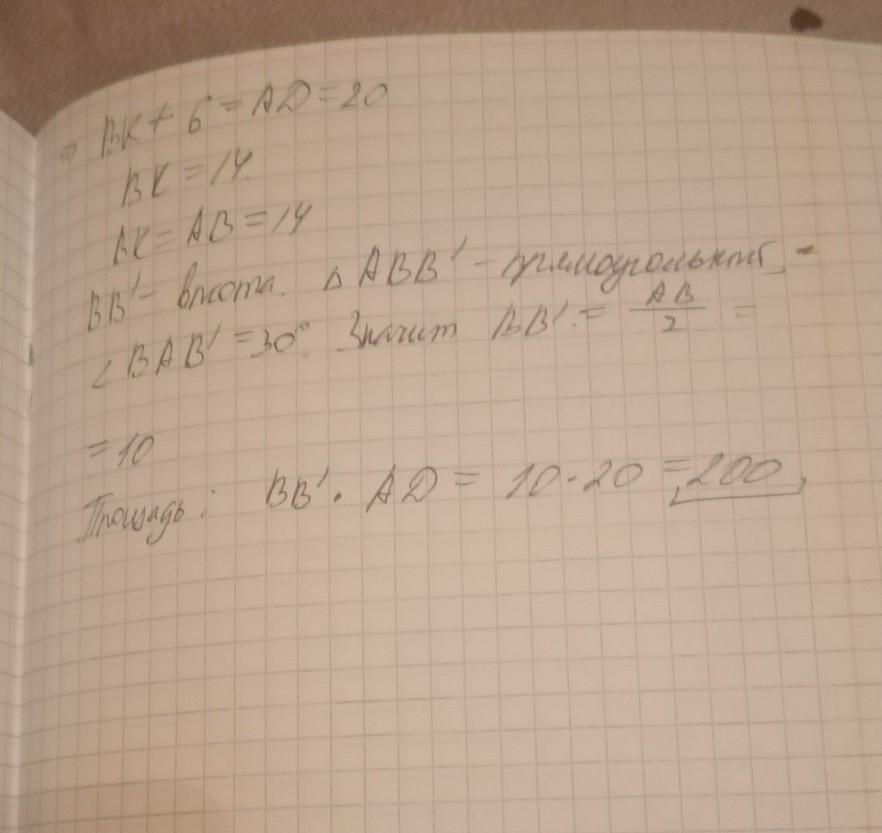 ⇒ BK + 6 = AD = 20
BK = 14.
BK = AB = 14
BB' - высота. △ABB' - прямоугольный, -
∠BAB' = 30°. Значит BB' = AB/2 =
= 10
Площадь: BB' · AD = 10 · 20 = 200